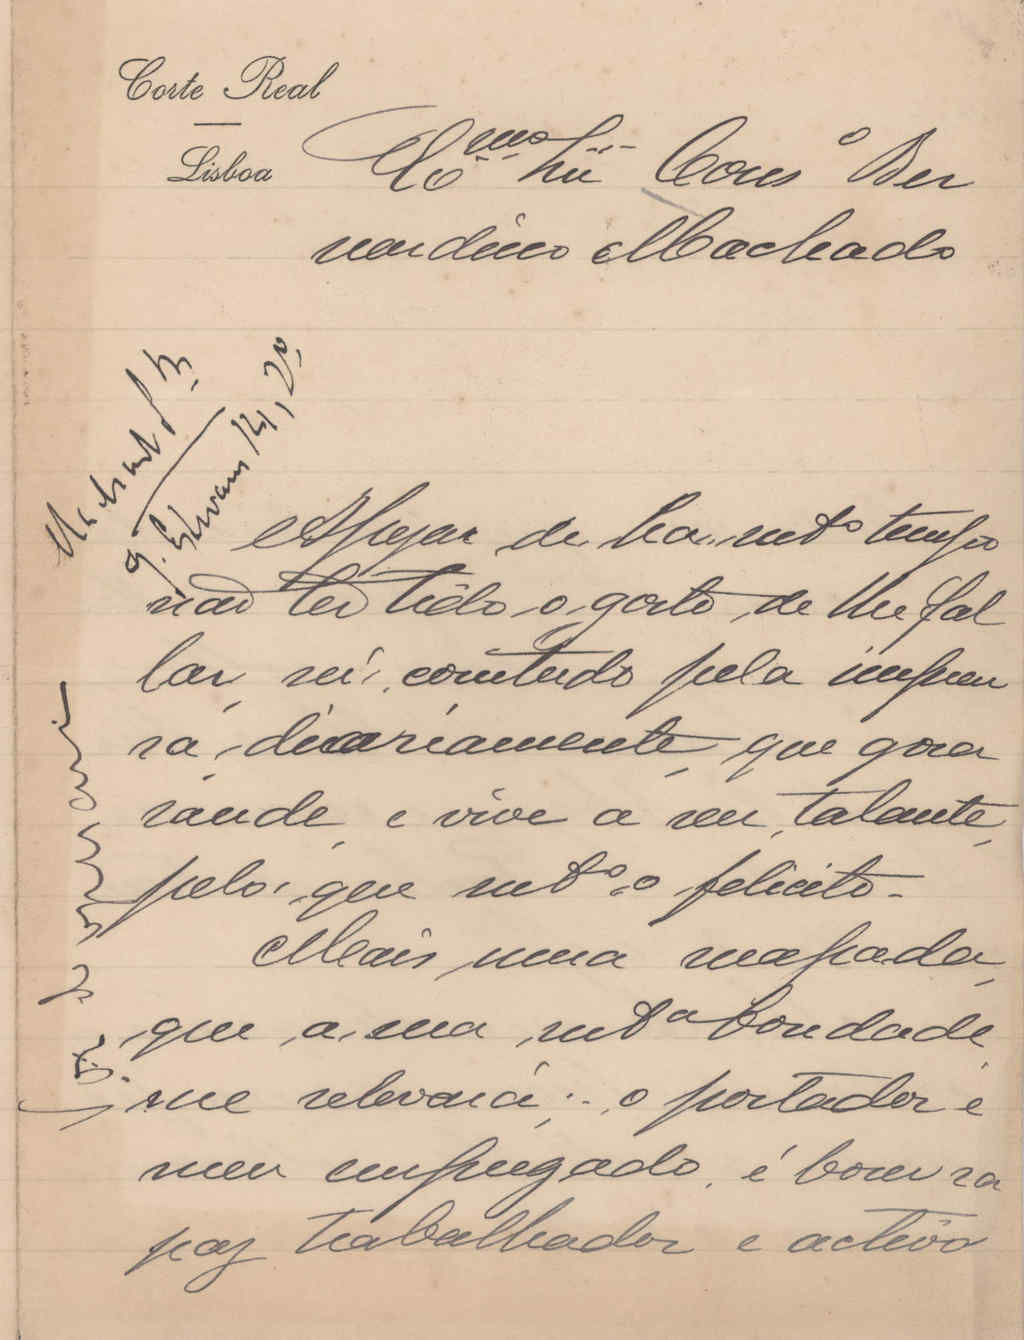 Corte Real
Lisboa
Ex.mo Sr. Cons.o Ber
nardino Machado
14, 2º
Apesar de ha mtº tempo
não ter tido o gosto de lhe fal
lar, sei, comtudo pela impren
sa, diariamente que gosa
saude, e vive a seu talante,
pelo que mtº o felicito.
Mais uma massada,
que a sua mtª bondade
me relevará; o portador é
meu empregado, é bom ra
paz trabalhador e activo